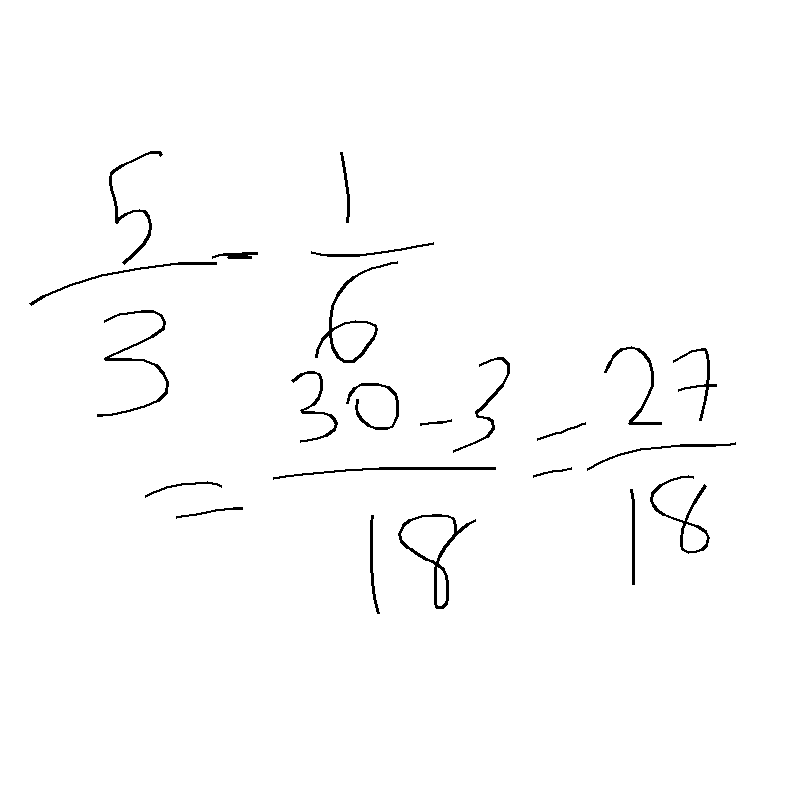 5/3 - 1/6
= (30 - 3)/18 = 27/18